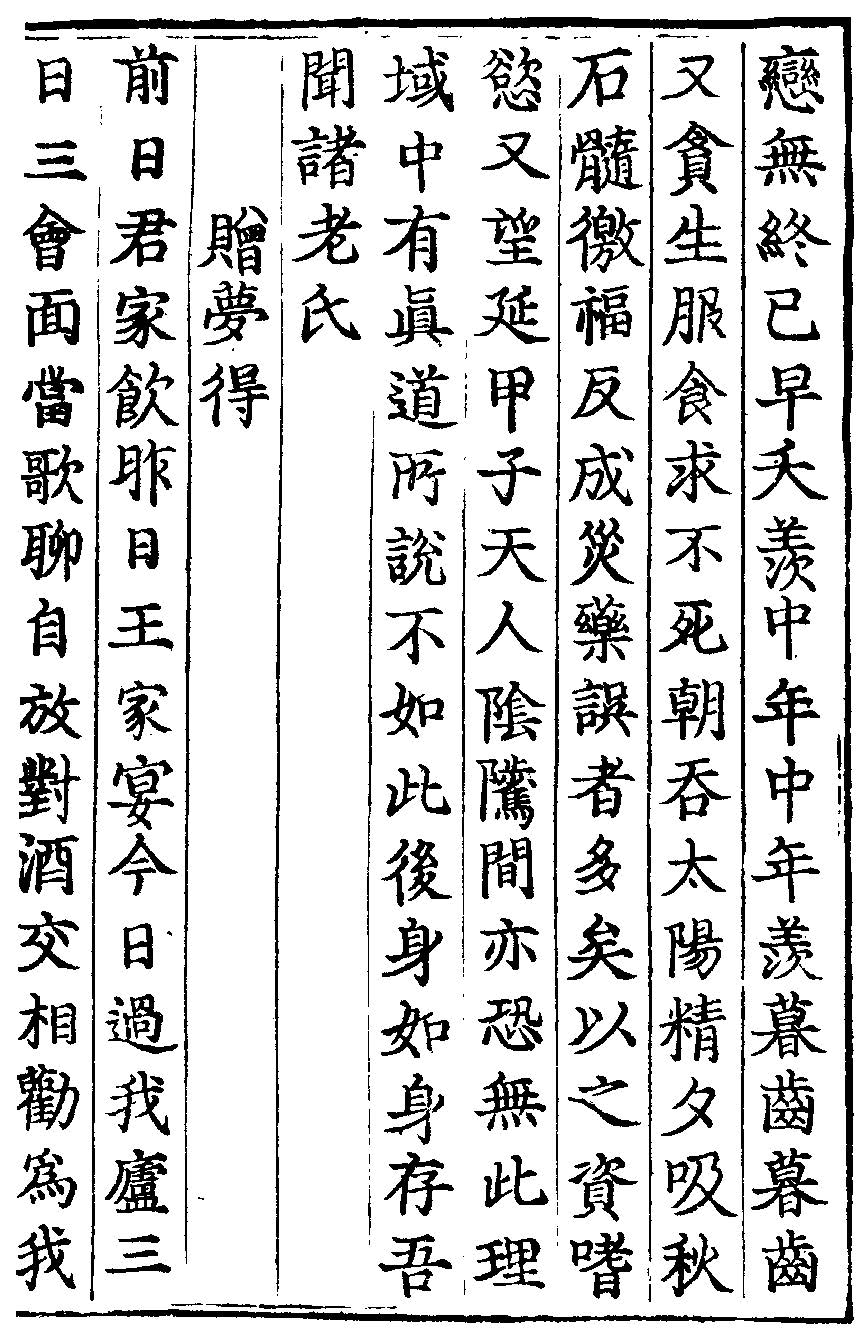 戀無終已早夭羨中年中年羨暮齒暮齒
又貪生服食求不死朝吞太陽精夕吸秋
石髓徼福反成災藥誤者多矣以之資嗜
慾又望延甲子天人陰騭間亦恐無此理
域中有眞道所說不如此後身如身存吾
聞諸老氏
贈夢得
前日君家飮昨日王家宴今日過我廬三
日三會面當歌聊自放對酒交相勸爲我